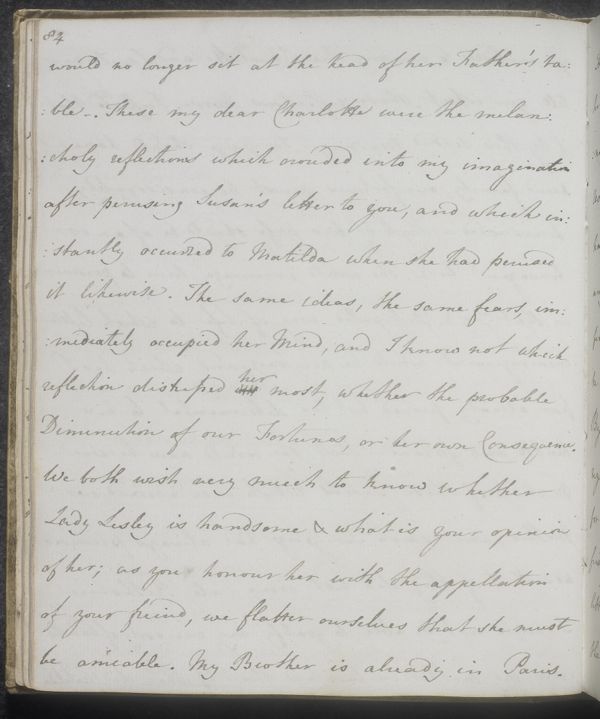 84
would no longer sit at the head of her Father's ta:
:ble_. These my dear Charlotte were the melan:
:choly reflections which crouded into my imagination
after perusing Susan's letter to you, and which in:
:stantly occurred to Matilda when she had perused
it likewise. The same ideas, the same fears, im:
:mediately occupied her Mind, and I know not which
reflection distressed her most, whether the probable
Diminution of our Fortunes, or her own Consequence.
We both wish very much to know whether
Lady Lesley is handsome & what is your opinion
of her; as you honour her with the appellation
of your freind, we flatter ourselves that she must
be amiable. My Brother is already in Paris.